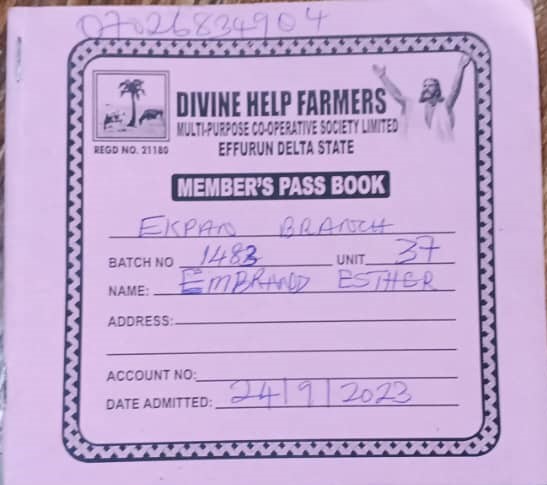 07026834904
DIVINE HELP FARMERS
MULTI-PURPOSE CO-OPERATIVE SOCIETY LIMITED
REGD NO. 21180
EFFURUN DELTA STATE
MEMBER'S PASS BOOK
EKPAN BRANCH
BATCH NO 1483 UNIT 37
NAME: ESTHER
ADDRESS:
ACCOUNT NO:
DATE ADMITTED: 24/9/2023